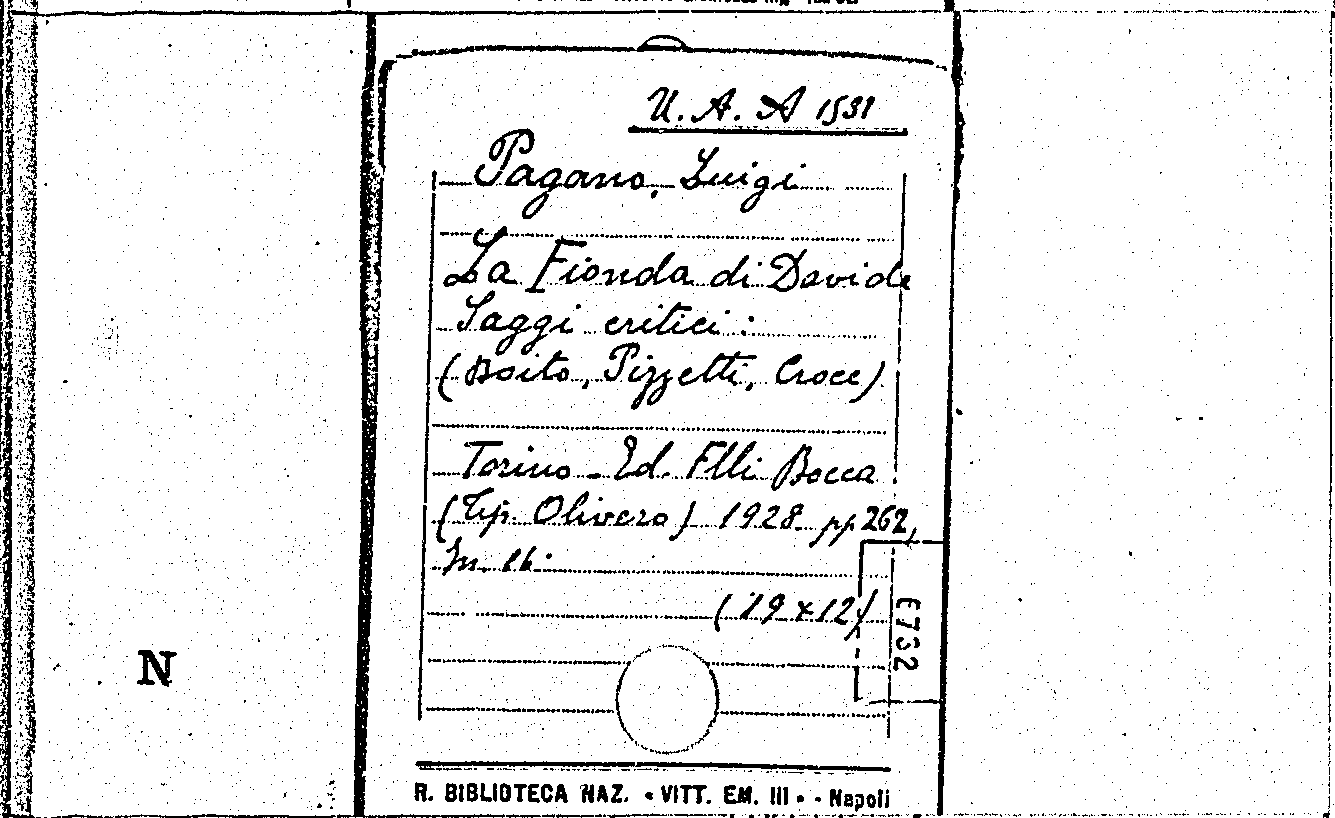 U. A. A 1531
Pagano, Luigi
La Fionda di Davide
Saggi critici :
(Boito, Pizzetti, Croce)
Torino - Ed. Flli Bocca
(Tip. Olivero) 1928. pp 262,
in 16.
(19 x 12)
E732
N
R. BIBLIOTECA NAZ. « VITT. EM. III » - Napoli